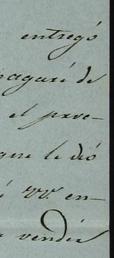 entregó
pagaré de
el preve-
que le dió
VV. en-
vender